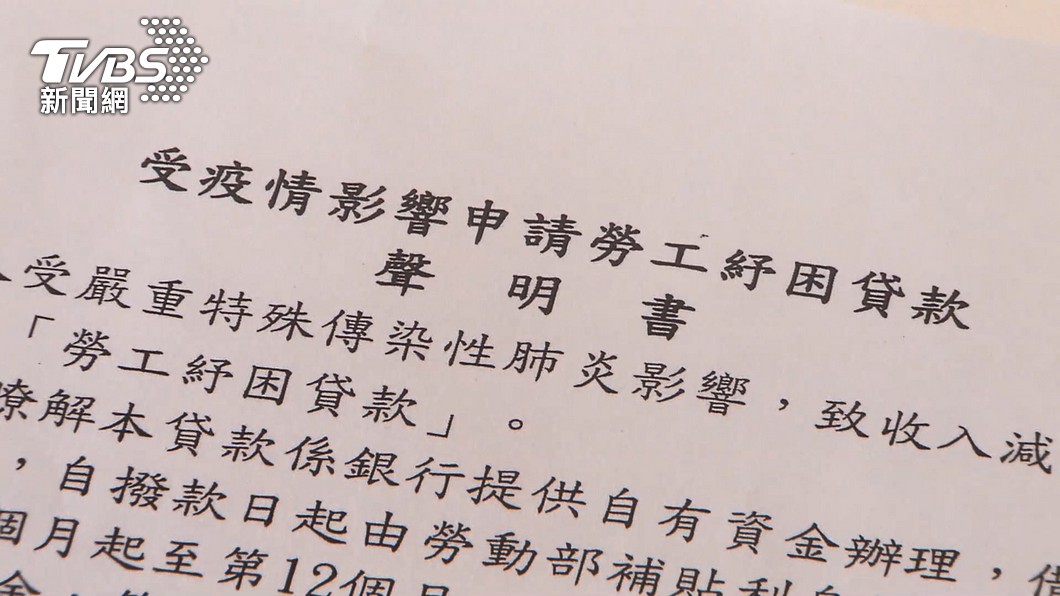 TVBS
新聞網
受疫情影響申請勞工紓困貸款
聲明書
受嚴重特殊傳染性肺炎影響，致收入減
「勞工紓困貸款」。
瞭解本貸款係銀行提供自有資金辦理，借
，自撥款日起由勞動部補貼利息
個月起至第12個月